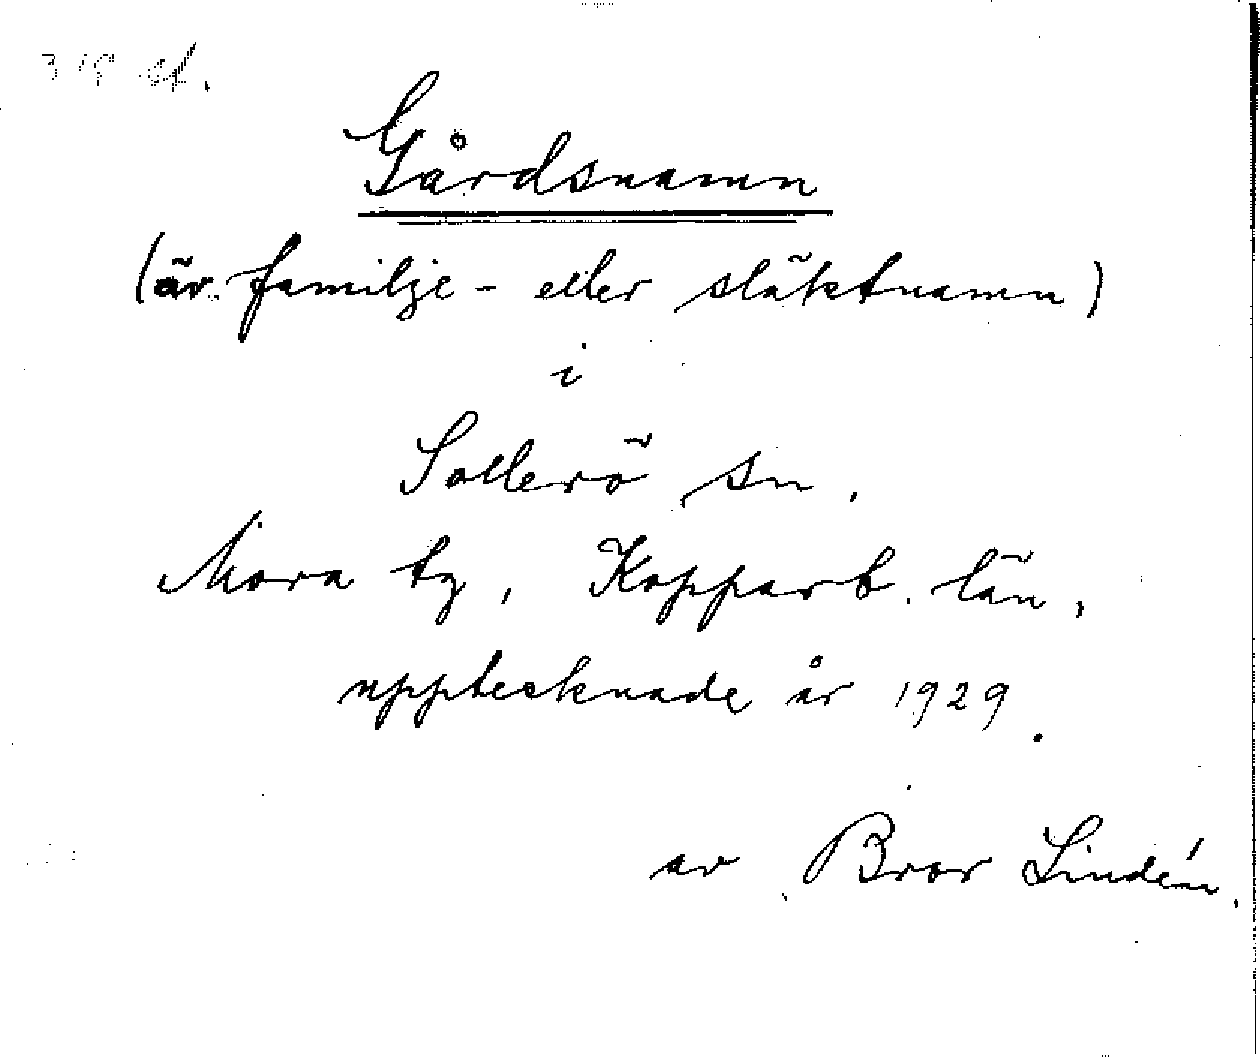 318 st.
Gårdsnamn
(äv. familje- eller släktnamn)
i
Sollerö sn,
Mora tg, Kopparb. län,
upptecknade år 1929.
av Bror Lindén.